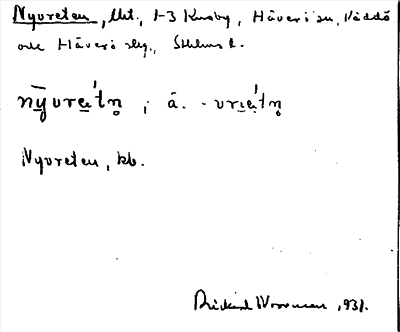 Nyvreten, lht., 1-3 Kusby, Häverö sn, Väddö
och Häverö slg., Sthlms l.
nȳvreá̱tn̥ ; ä. -vri̯a̱tn̥
Nyvreten, kb.
Rickard Wornman, 1931.